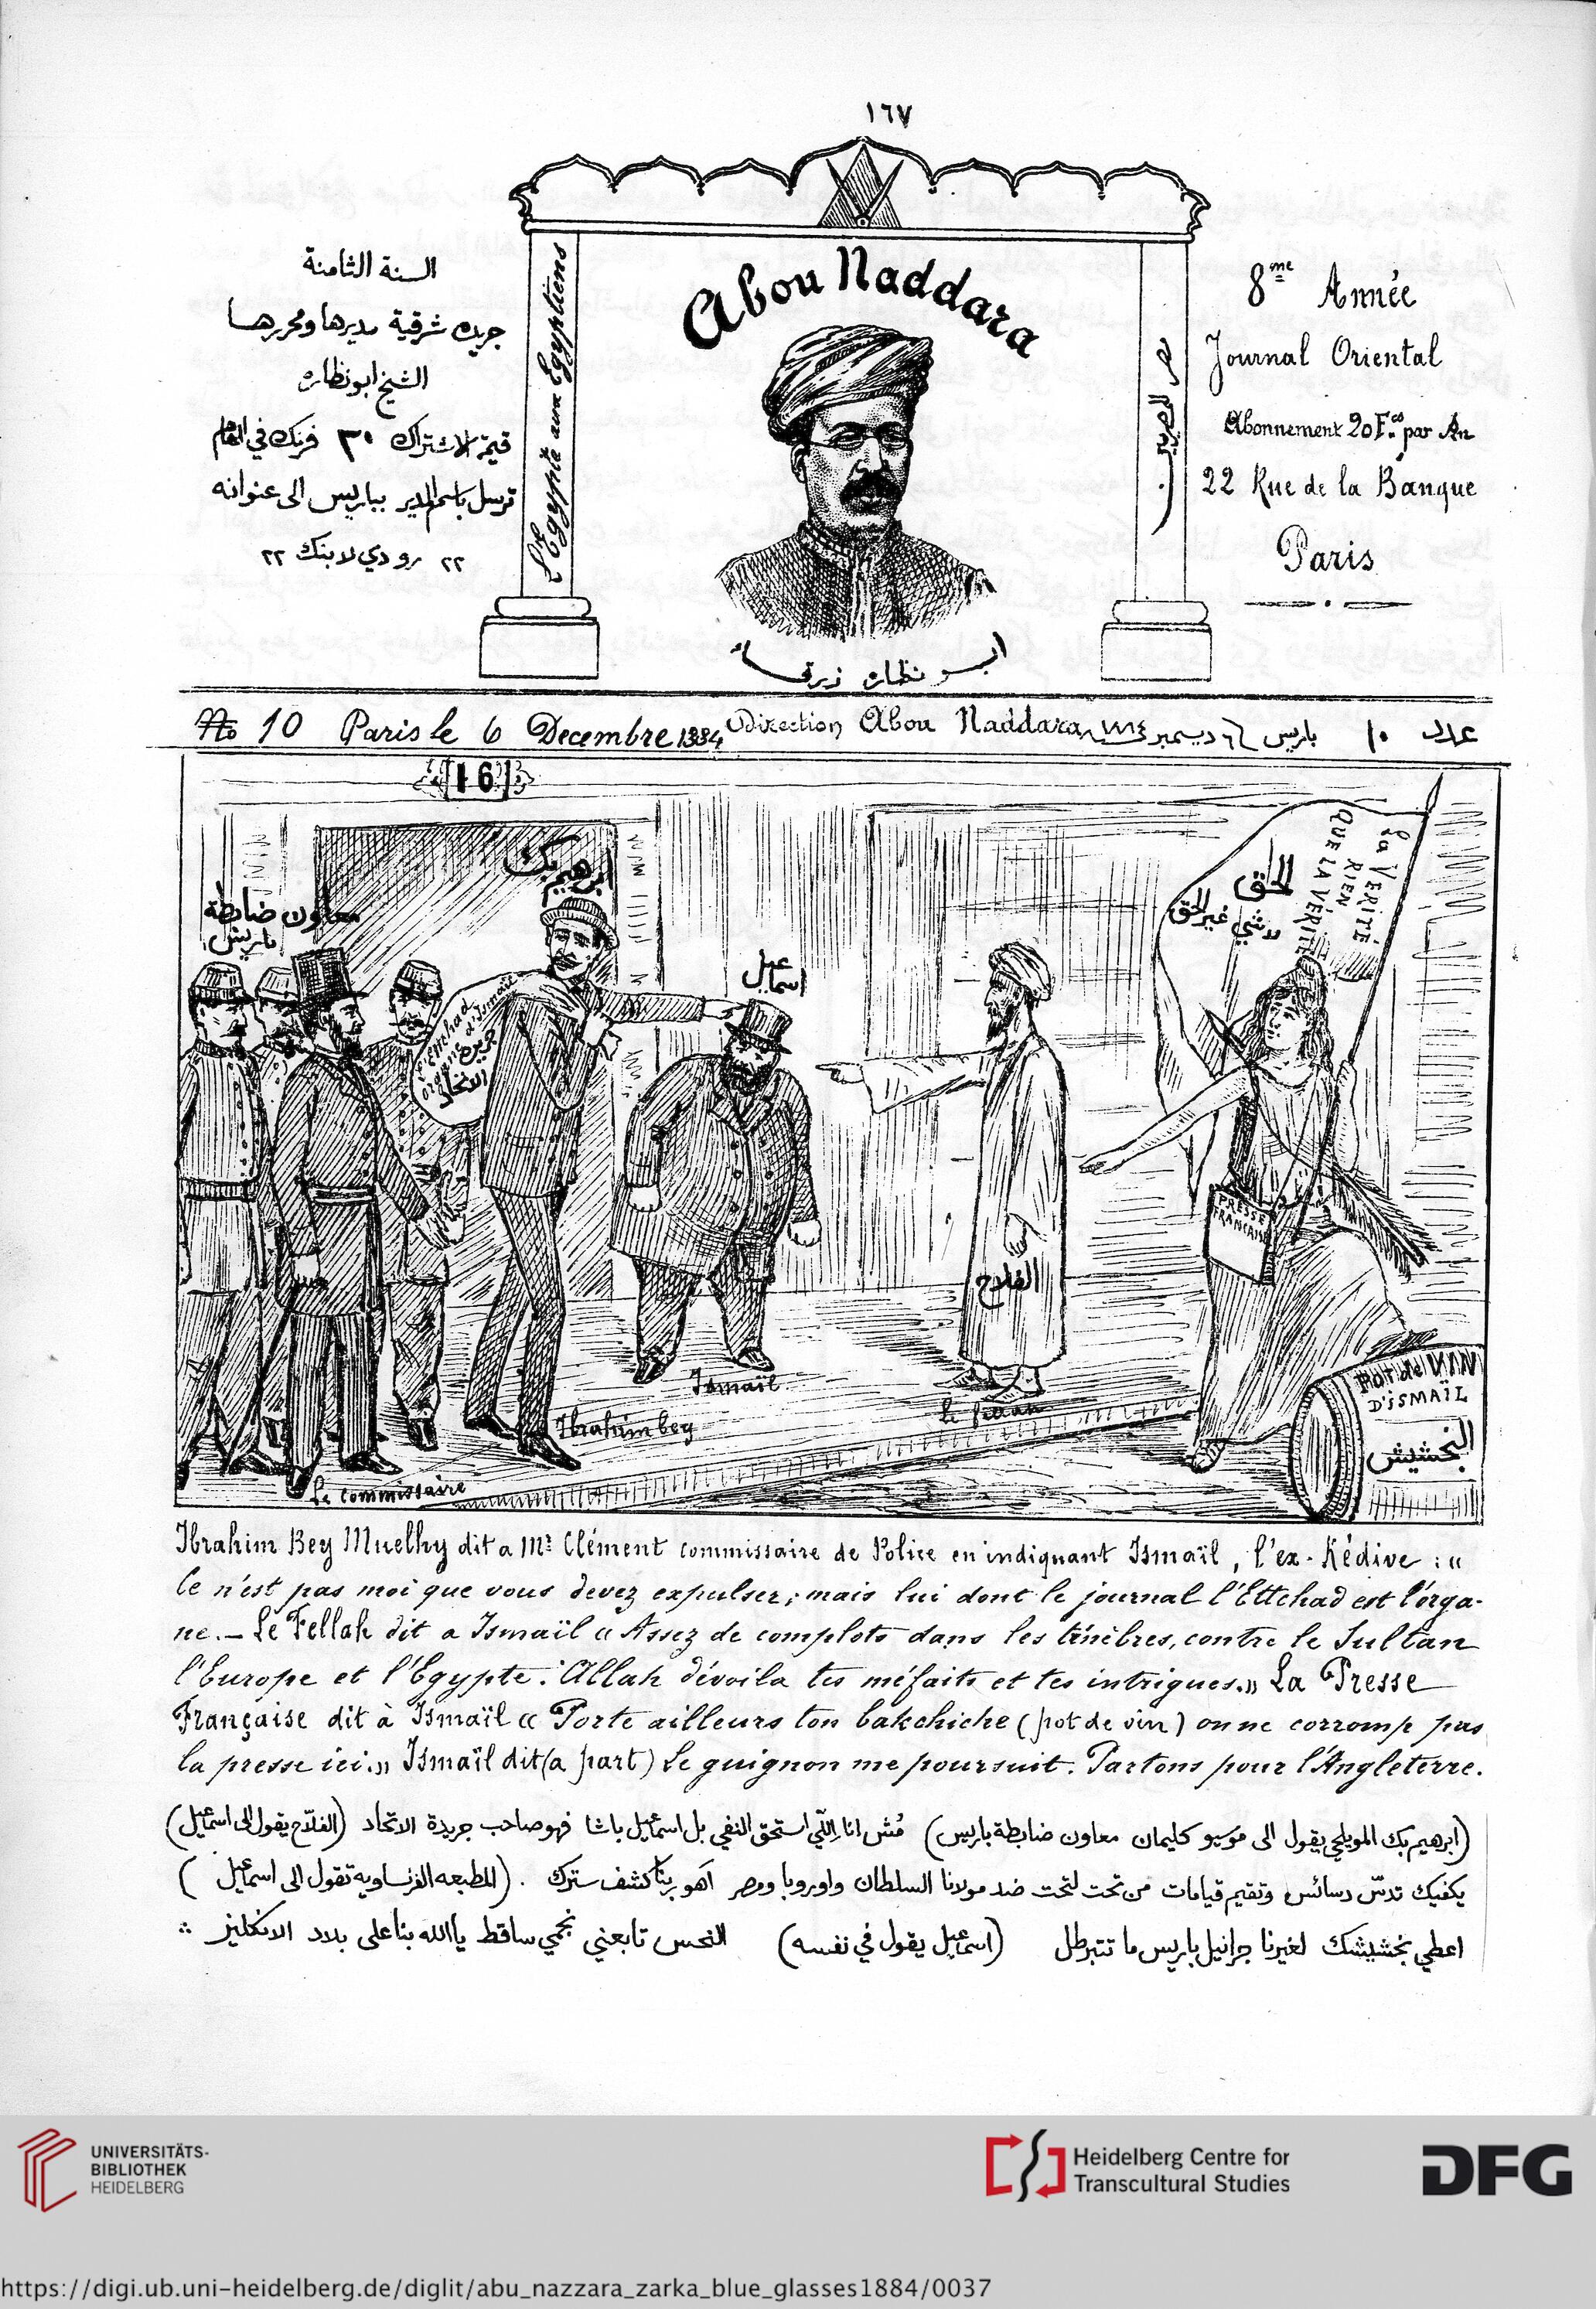 ١٦٧
السنة الثامنة
جريدة شرقية مديرها ومحررها
الشيخ ابو نظاره
قيمة الاشتراك ٣٠ فرنك في العام
ترسل باسم المدير بباريس الى عنوانه
٢٢ رو دي لا بنك ٢٢
L'Egypte aux Egyptiens
Abou Naddara
ابو نظاره زرقا
مصر للمصريين
8me Année
Journal Oriental
Abonnement 20 Fcs par An
22 Rue de la Banque
Paris
No 10 Paris le 6 Decembre 1884 Direction Abou Naddara
عدد ١٠ باريس ٦ ديسمبر سنة ١٨٨٤
16
معاون ضابطة
باريس
ابرهيم بك
اسماعيل
L'Ettehad
organe d'Ismaïl
جريدة
الاتحاد
La VERITÉ
RIEN
QUE LA VÉRITÉ
الحق
لا شي غير الحق
PRESSE
FRANCAISE
الفلاح
Pot de VIN
D'ISMAÏL
البخشيش
Ismaïl
Ibrahim bey
le fellah
Le commissaire
Ibrahim Bey Muelhy dit a Mr Clément commissaire de Police en indiquant Ismaïl, l'ex-Kédive : «
Ce n'est pas moi que vous devez expulser; mais lui dont le journal l'Ettehad est l'orga-
ne. — Le Fellah dit a Ismaïl « Assez de complots dans les ténèbres, contre le Sultan
l'Europe et l'Egypte. Allah dévoila tes méfaits et tes intrigues.» La Presse
Française dit à Ismaïl « Porte ailleurs ton bakchiche (pot de vin) on ne corromp pas
la presse ici.» Ismaïl dit (a part) Le guignon me poursuit. Partons pour l'Angleterre.
(ابرهيم بك المويلحي يقول الى موسيو كليمان معاون ضابطة باريس) مُش انا اللّي استحق النفي بل اسماعيل باشا فهو صاحب جريدة الاتحاد (الفلّاح يقول الى اسماعيل)
يكفيك تدسّ دسائس وتقيم قيامات من تحت لتحت ضد مولانا السلطان واوروبا ومصر آهو ربنا كشف سترك . (المطبعه الفرنساويه تقول الى اسماعيل)
اعطي بخشيشك لغيرنا جرانيل باريس ما تتبرطل (اسماعيل يقول في نفسه) النحس تابعني نجمي ساقط يا الله بنا على بلاد الانكليز
UNIVERSITÄTS-
BIBLIOTHEK
HEIDELBERG
Heidelberg Centre for
Transcultural Studies
DFG
https://digi.ub.uni-heidelberg.de/diglit/abu_nazzara_zarka_blue_glasses1884/0037